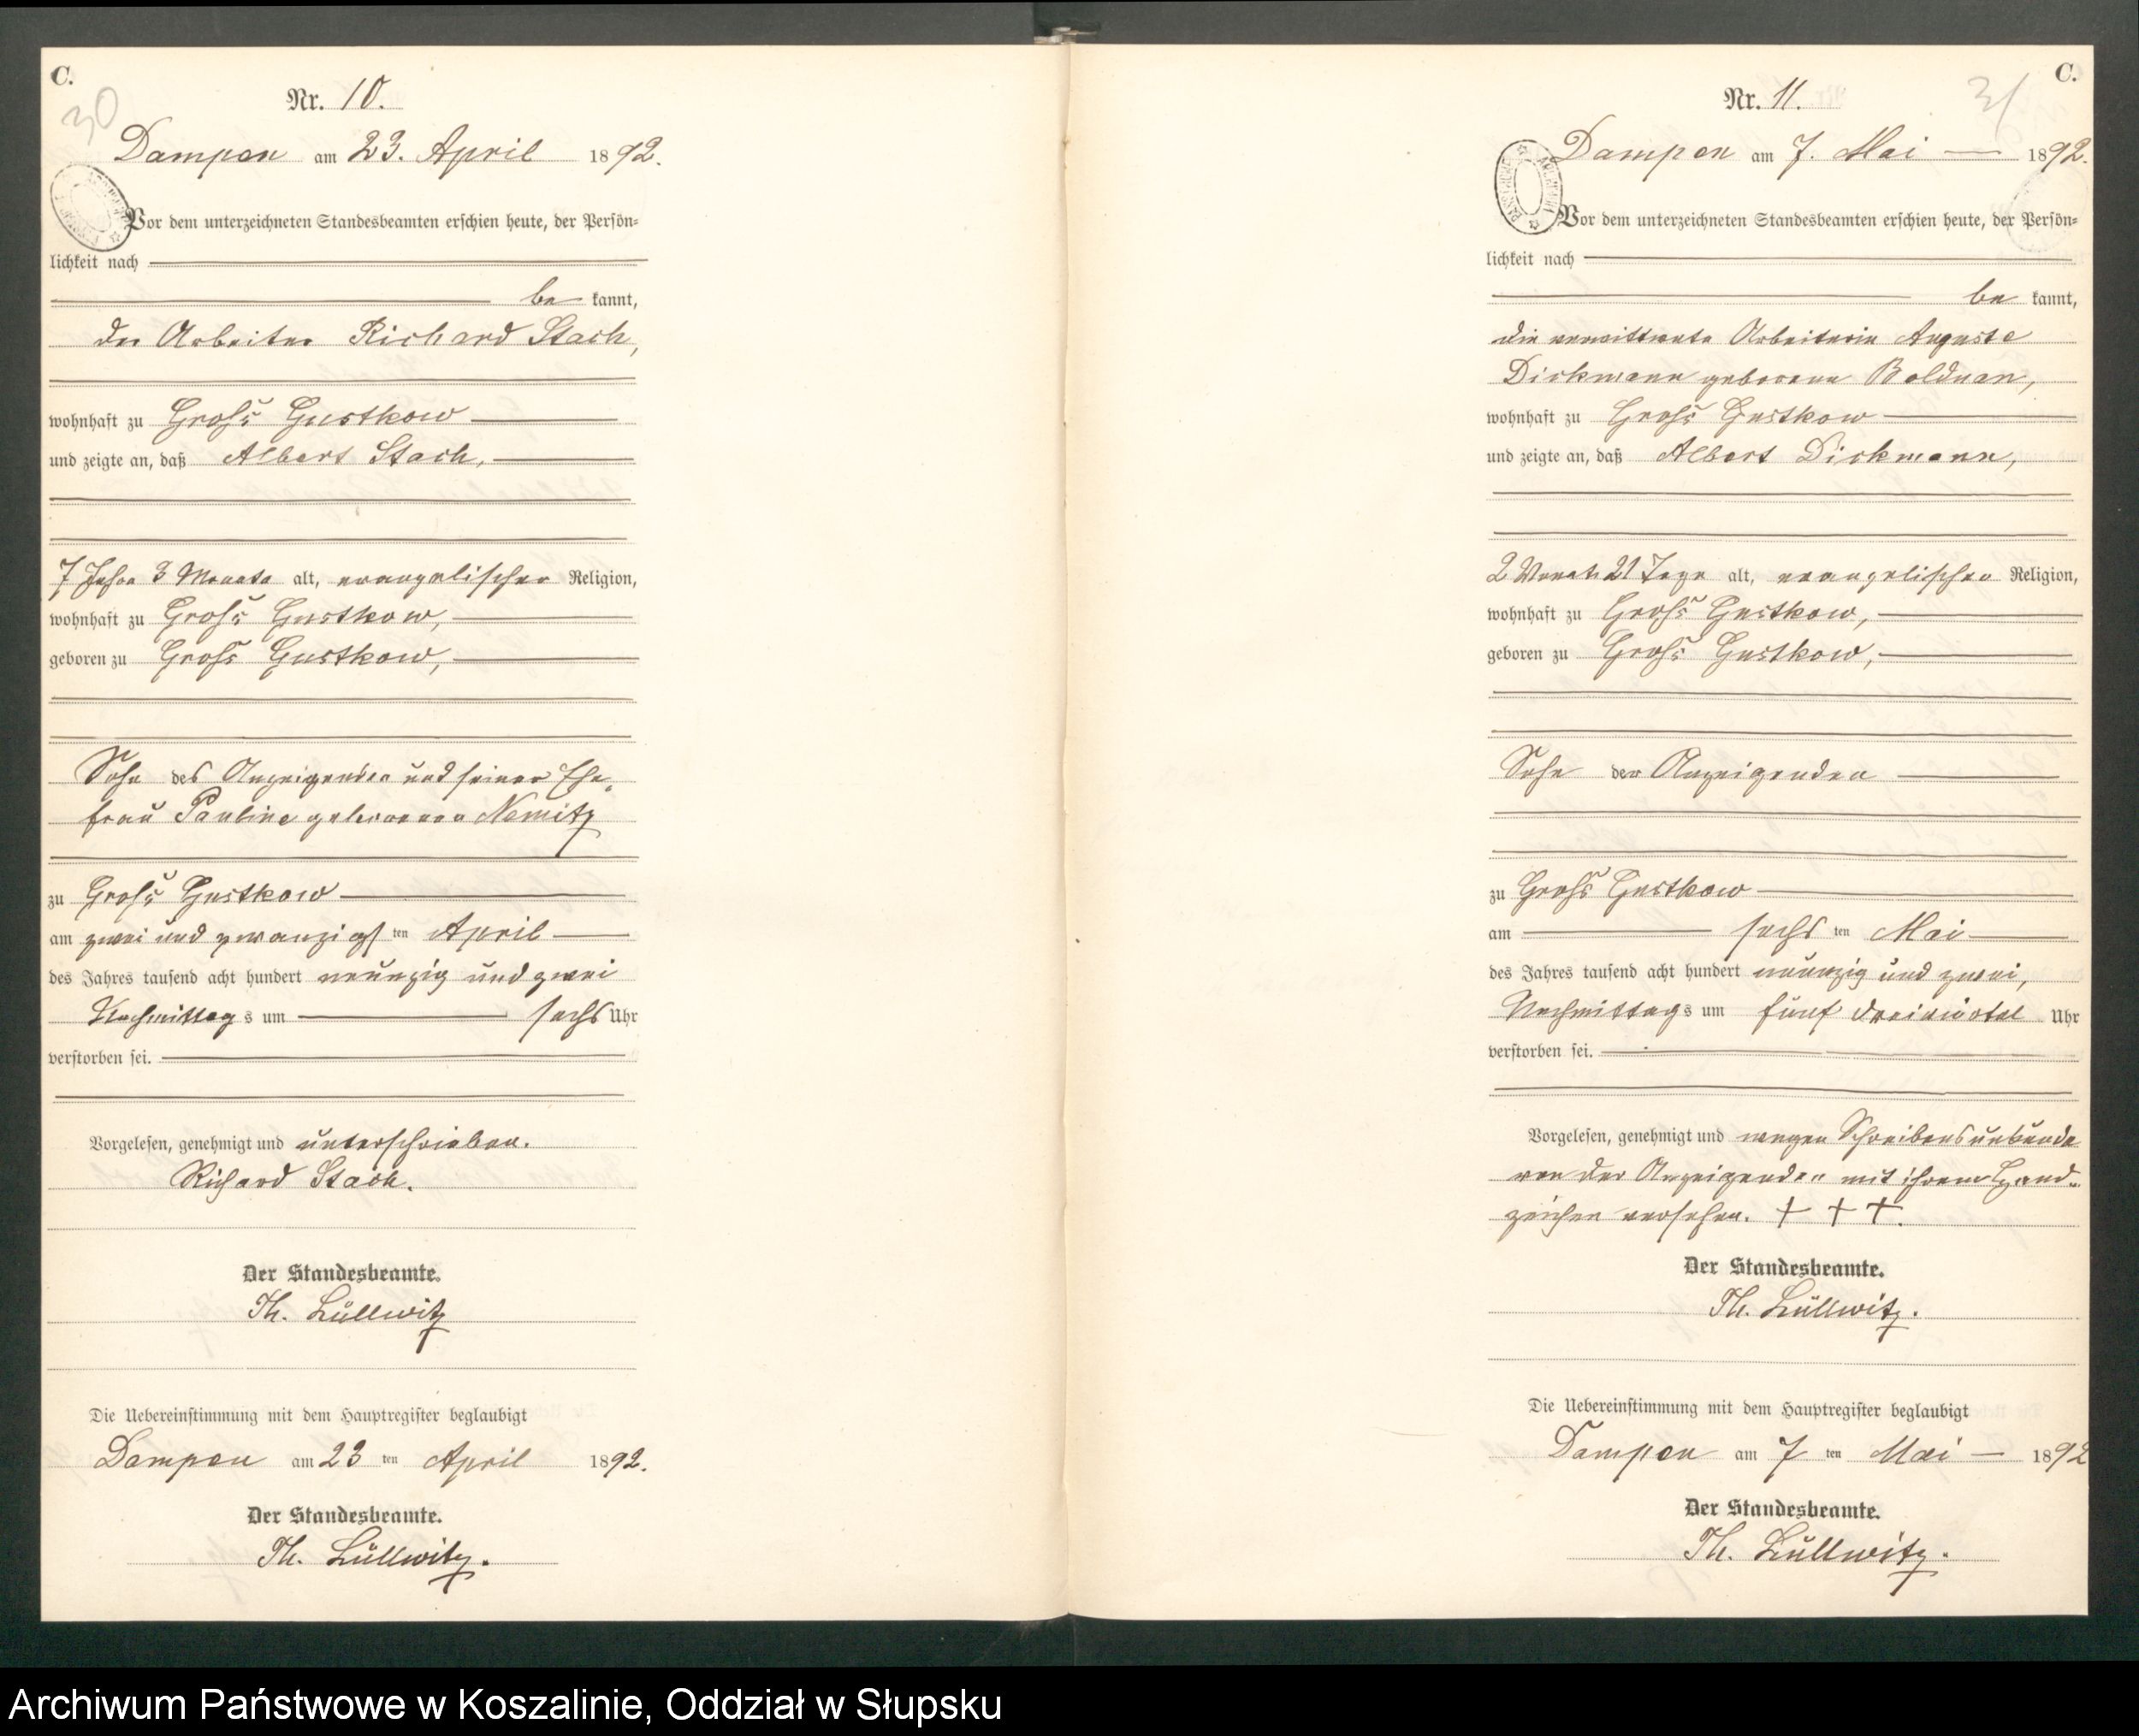 C.
30
Nr. 10.
Dampen am 23. April 1892.
Vor dem unterzeichneten Standesbeamten erschien heute, der Persön-
lichkeit nach
be kannt,
der Arbeiter Richard Stach,
wohnhaft zu Groß Gustkow
und zeigte an, daß Albert Stach,
7 Jahre 3 Monate alt, evangelischer Religion,
wohnhaft zu Groß Gustkow,
geboren zu Groß Gustkow,
Sohn des Anzeigenden und seiner Ehe-
frau Pauline geborenen Nemitz
zu Groß Gustkow
am zwei und zwanzigsten April
des Jahres tausend acht hundert neunzig und zwei
Nachmittags um sechs Uhr
verstorben sei.
Vorgelesen, genehmigt und unterschrieben.
Richard Stach.
Der Standesbeamte.
Th. Lüllwitz
Die Uebereinstimmung mit dem Hauptregister beglaubigt
Dampen am 23 ten April 1892.
Der Standesbeamte.
Th. Lüllwitz.
C.
31
Nr. 11.
Dampen am 7. Mai 1892.
Vor dem unterzeichneten Standesbeamten erschien heute, der Persön-
lichkeit nach
be kannt,
die verwittwete Arbeiterin Auguste
Dickmann geborene Bolduan,
wohnhaft zu Groß Gustkow
und zeigte an, daß Albert Dickmann,
2 Monate 21 Tage alt, evangelischer Religion,
wohnhaft zu Groß Gustkow,
geboren zu Groß Gustkow,
Sohn der Anzeigenden
zu Groß Gustkow
am sechsten Mai
des Jahres tausend acht hundert neunzig und zwei,
Nachmittags um fünf dreiviertel Uhr
verstorben sei.
Vorgelesen, genehmigt und wegen Schreibensunkunde
von der Anzeigenden mit ihrem Hand-
zeichen versehen. + + +.
Der Standesbeamte.
Th. Lüllwitz.
Die Uebereinstimmung mit dem Hauptregister beglaubigt
Dampen am 7 ten Mai 1892
Der Standesbeamte.
Th. Lüllwitz.
Archiwum Państwowe w Koszalinie, Oddział w Słupsku